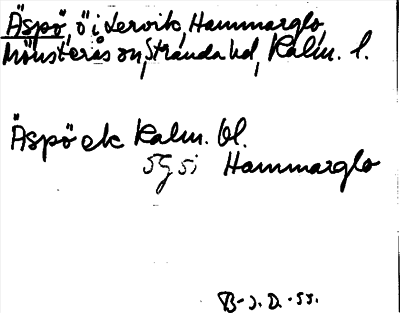 Äspö, ö i Lervik, Hammarglo,
Mönsterås sn, Stranda hd, Kalm. l.
Äspö ek Kalm. bl.
5G5i Hammarglo
B-J. D. -53.